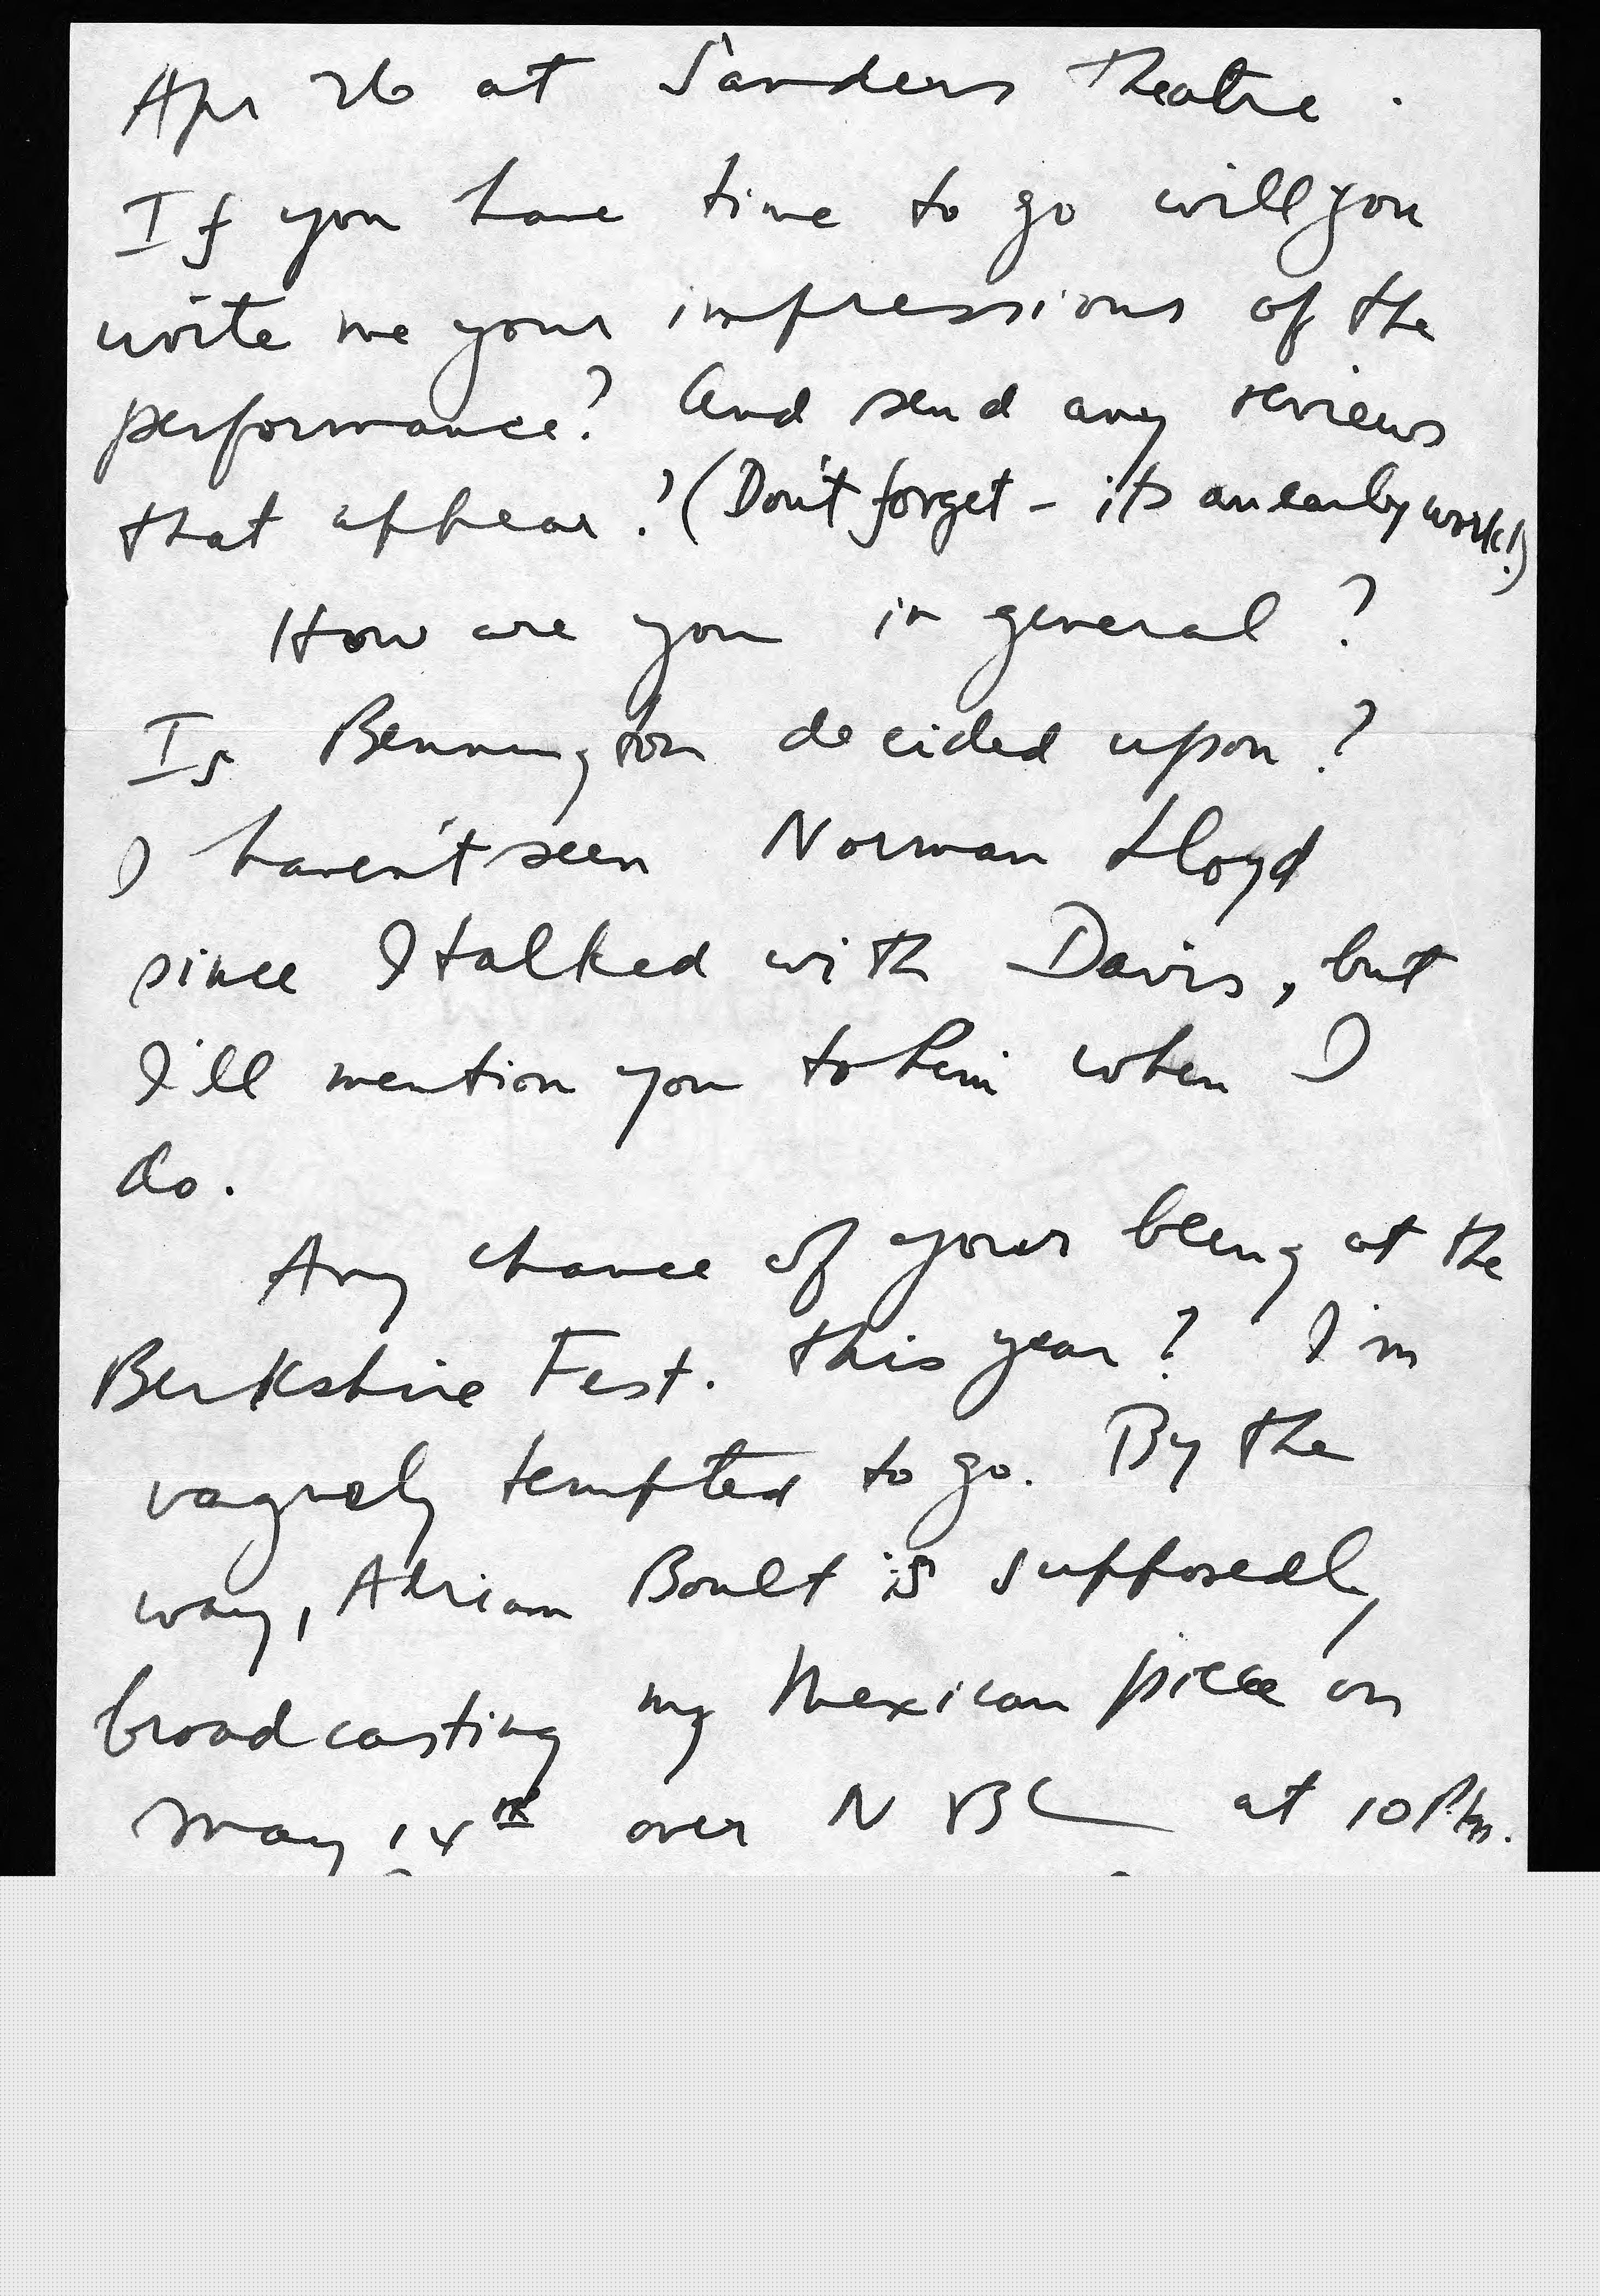 Apr 26 at Sanders Theatre.
If you have time to go will you
write me your impressions of the
performance? And send any reviews
that appear? (Don't forget – its an early work!)
How are you in general?
Is Bennington decided upon?
I haven't seen Norman Lloyd
since I talked with Davis, but
I'll mention you to him when I
do.
Any chance of your being at the
Berkshire Fest. this year? I'm
vaguely tempted to go. By the
way, Adrian Boult is supposedly
broadcasting my Mexican piece on
May 14th over NBC at 10 P.M.